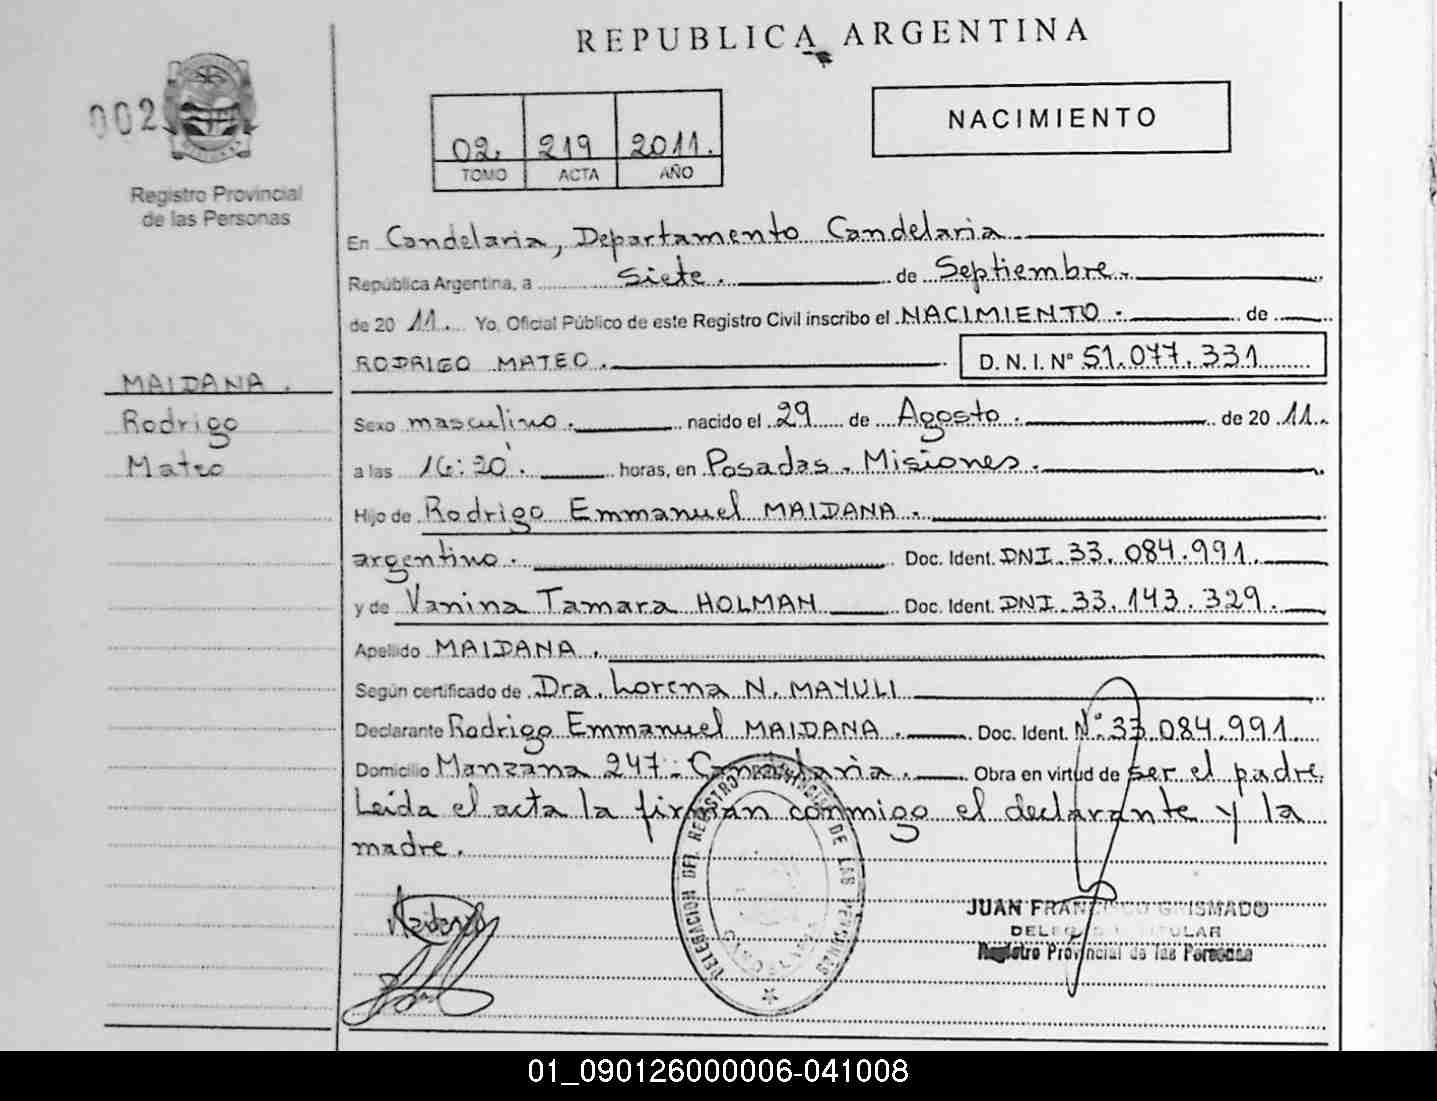 REPUBLICA ARGENTINA
002
Registro Provincial
de las Personas
02. 219 2011.
TOMO ACTA AÑO
NACIMIENTO
En Candelaria, Departamento Candelaria
República Argentina, a siete. de Septiembre.
de 20 11. Yo, Oficial Público de este Registro Civil inscribo el NACIMIENTO. de
RODRIGO MATEO. D. N. I. N° 51.077.331
MAIDANA.
Rodrigo
Mateo
Sexo masculino. nacido el 29 de Agosto. de 20 11.
a las 16:20'. horas, en Posadas - Misiones.
Hijo de Rodrigo Emmanuel MAIDANA.
argentino. Doc. Ident. DNI. 33.084.991.
y de Vanina Tamara HOLMAN Doc. Ident. DNI. 33.143.329.
Apellido MAIDANA.
Según certificado de Dra. Lorena N. MAYULI
Declarante Rodrigo Emmanuel MAIDANA. Doc. Ident. N° 33.084.991.
Domicilio Manzana 247 - Candelaria. Obra en virtud de ser el padre.
Leída el acta la firman conmigo el declarante y la
madre.
Maidana
DELEGACION DEL REGISTRO PROVINCIAL DE LAS PERSONAS
CANDELARIA
JUAN FRANCISCO GRISMADO
DELEGADO TITULAR
Registro Provincial de las Personas
01_090126000006-041008